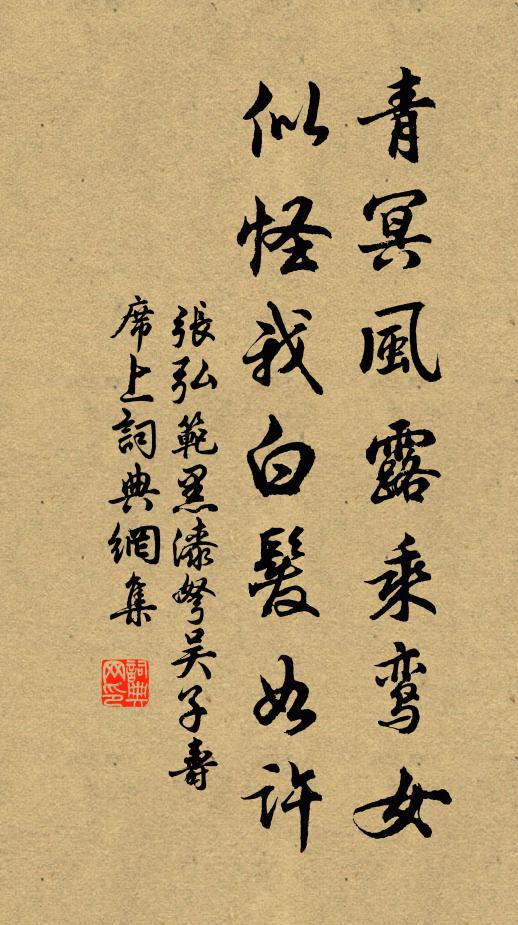 青冥風露乘鸾女
似怪我白髮如許
張弘範黑漆弩吴子壽
席上詞典網集
詞典
网印